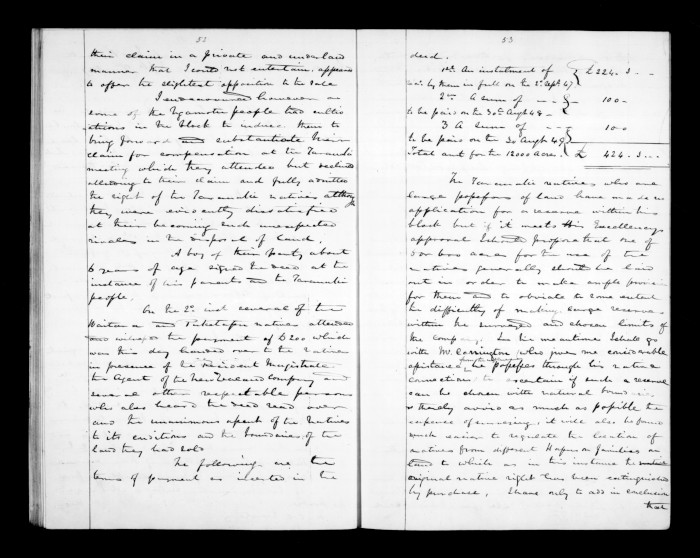 52
their claim in a private and underhand
manner that I could not entertain, appears
to offer the slightest opposition to the sale
I endeavoured however as
some of the Ngamotu people had cultiv
ations in the block to induce them to
bring forward and substantiate their
claim for compensation at the Taranaki
meeting which they attended but declined
alluding to their claim and fully admitted
the right of the Taranaki natives although
they were evidently dissatisfied
at their becoming such unexpected
rivals in the disposal of land.
A boy of their party about
6 years of age signed the deed at the
instance of his parents and the Taranaki
people.
On the 2d. inst. several of the
Waitara and natives attended
and witnessed the payment of £200 which
was this day handed over to the natives
in presence of the Resident Magistrate
the Agent of the New Zealand Company and
several other respectable persons
who also heard the deed read over
and the unanimous assent of the Natives
to its conditions and the boundaries of the
land they had sold
The following are the
terms of payment as inserted in the
53
deed.
1st. An instalment of £224. 3 . -
by them in full on the
2nd A sum of - - 100 -
to be paid on the 30 Augt 48 -
3 A sum of - - 100
to be paid on the 30 Augt 49
Total amt for the 12000 acres. £ 424. 3 ...
The Taranaki natives who are
large possessors of land have made no
application for a reserve within this
block but if it meets His Excellency's
approval I should propose that one of
500 or 600 acres for the use of the
natives generally should be laid
out in order to make ample provision
for them and to obviate to some extent
the difficulty of making large reserves
within the surveyed and chosen limits of
the company. In the meantime I shall go
with Mr. Carrington who gives me considerable
assistance he possesses through his native
connections to ascertain if such a reserve
can be chosen with natural boundaries
& thereby avoid as much as possible the
expense of surveying, it will also be found
much easier to regulate the location of
natives from different Hapus or families on
land to which as in this instance the
original native right has been extinguished
by purchase. I have only to add in conclusion
that